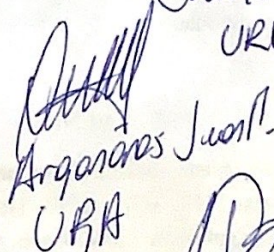 URA
Argañarás Juan P.
URA